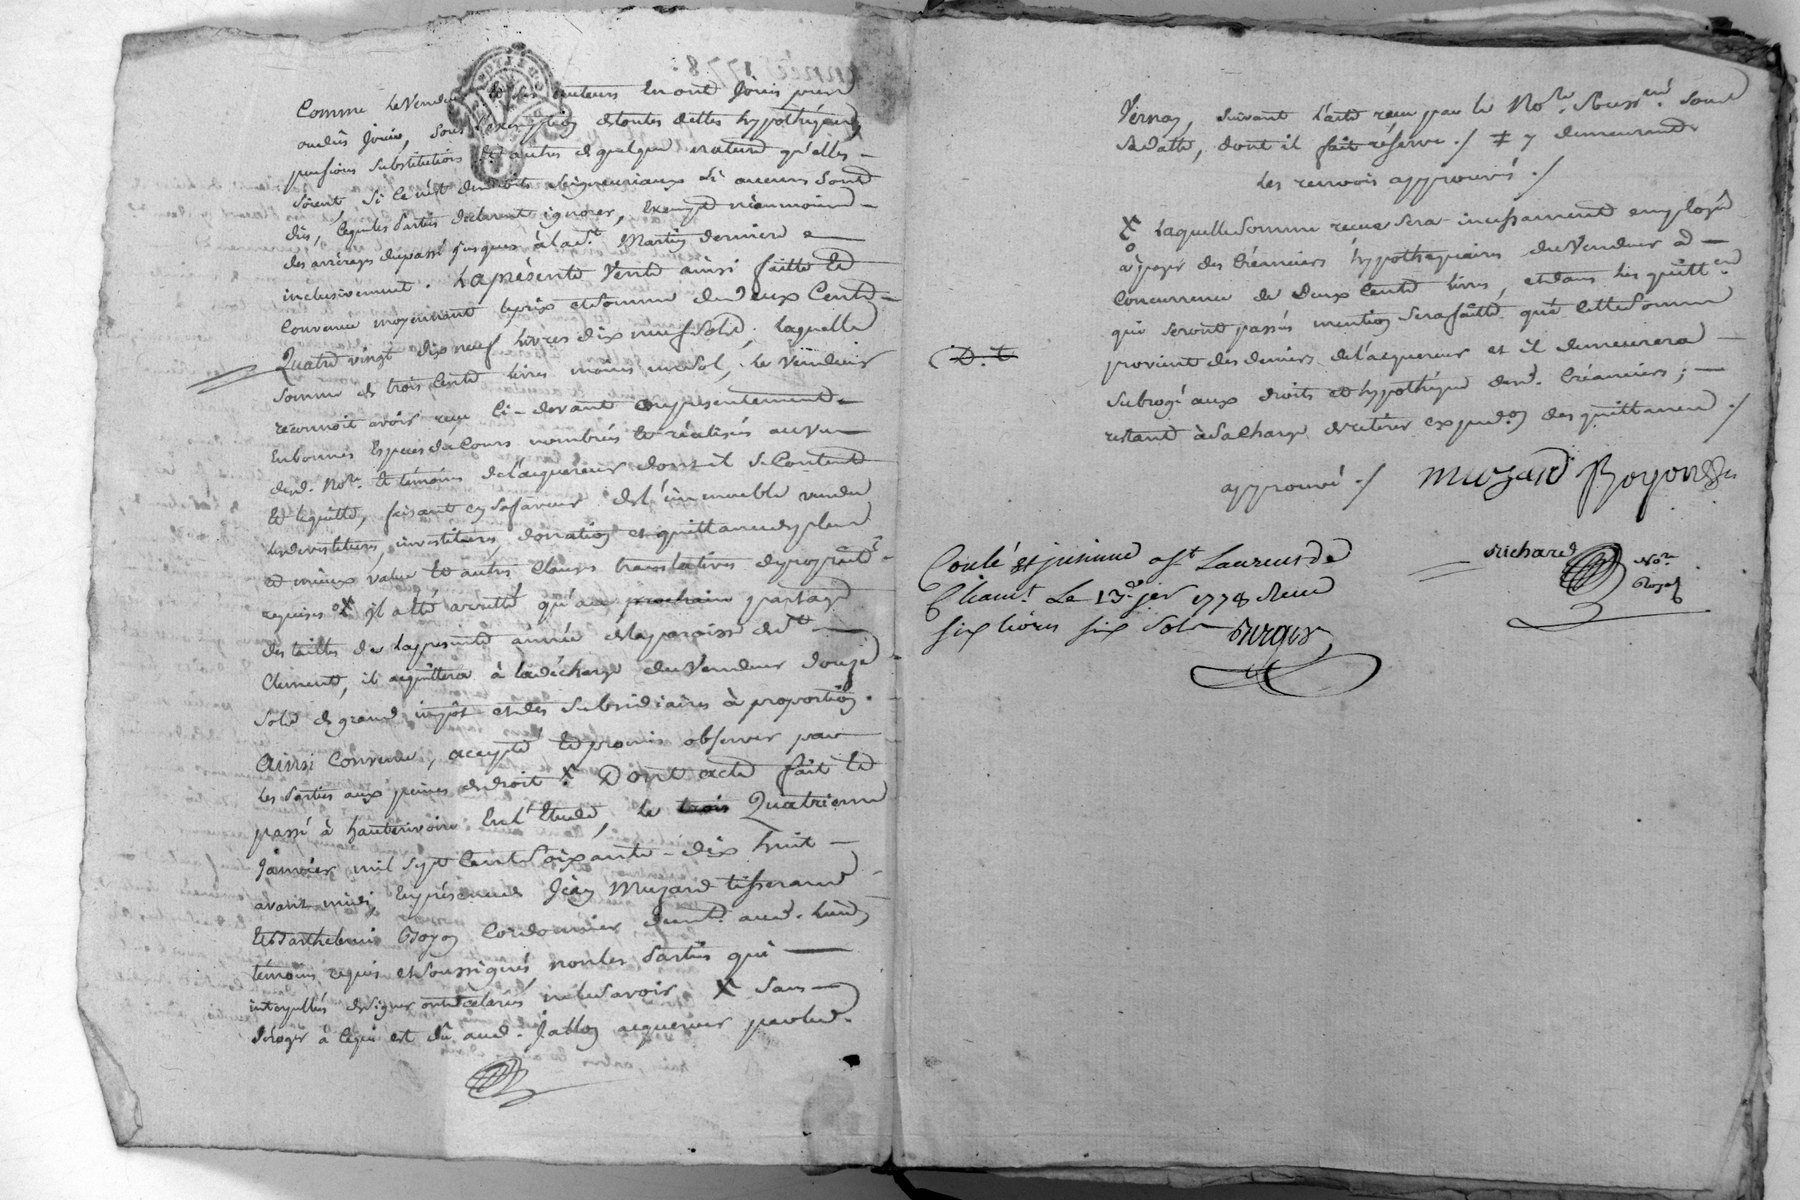 Comme le Vendeur et ses auteurs en ont joüis pûen
ou dûs joüir, sous l'exemption de toutes dettes hypothéques,
pensions substitutions et autres de quelque nature qu'elles
soient, si ce n'est des droits seigneuriaux si aucuns sont
dûs, ce que les parties déclarent ignorer, exempt néanmoins
des arrérages du passé jusques à la St. Martin derniere
inclusivement. La présente Vente ainsi faitte et
convenüe moyennant le prix et somme de deux Cents
Quatre vingt dix neuf livres dix neuf sols, laquelle
somme de trois Cents livres moins un sol, le Vendeur
reconnoit avoir reçu ci-devant ou présentement
en bonnes Espéces de Cours nombrés et réalisés au vu
dud. Nore. et témoins de l'acquereur dont il se Contente
et le quitte, faisant en sa faveur de l'immeuble vendu
les devestitures, investitures, donation et quittance du plus
et mieux value et autres clauses translatives de propriété
requises X il a été arrêtté qu'au prochain partage
des tailles de la présente année de la paroisse de St
Clement, il acquittera à la décharge du Vendeur douze
sols de grand impôt et des subsidiaires à proportion.
Ainsi Convenu, accepté et promis observer par
les parties aux peines de droit X Dont acte fait et
passé à hauterivoire En l'Etude, le trois Quatrieme
Janvier mil sept Cent Soixante-dix huit
avant midi, En présence de Jean Muzard tisserand
et Barthelemi Boyon Cordonnier demt. aud. lieu,
témoins requis et soussignés non les parties qui
interpellés de signer ont déclarés ne le savoir X Sans
déroger à ce qui est dû aud. Jallon acquereur par led.
Vernay, suivant l'acte reçu par le Nore. Soussigné sous
sa datte, dont il fait réserve ./ ‡ y demeurants
les renvois approuvés ./
X Laquelle somme reçue sera incessament employée
à payer des Créanciers hypothequaires du Vendeur à
Concurrence de deux Cents livres, et dans les quittces
qui seront passés mention sera faitte que cette somme
provient des deniers de l'acquereur et il demeurera
subrogé aux droits et hypothéque desd. Créanciers;
restant à sa charge de retirer expedon des quittances ./
approuvé ./ Muzard Boyon
D. t.
Richard Nore
Royal
Conlé et insinué a St Laurent de
Chamt. Le 13e. jer 1778 Reçu
six livres six sols